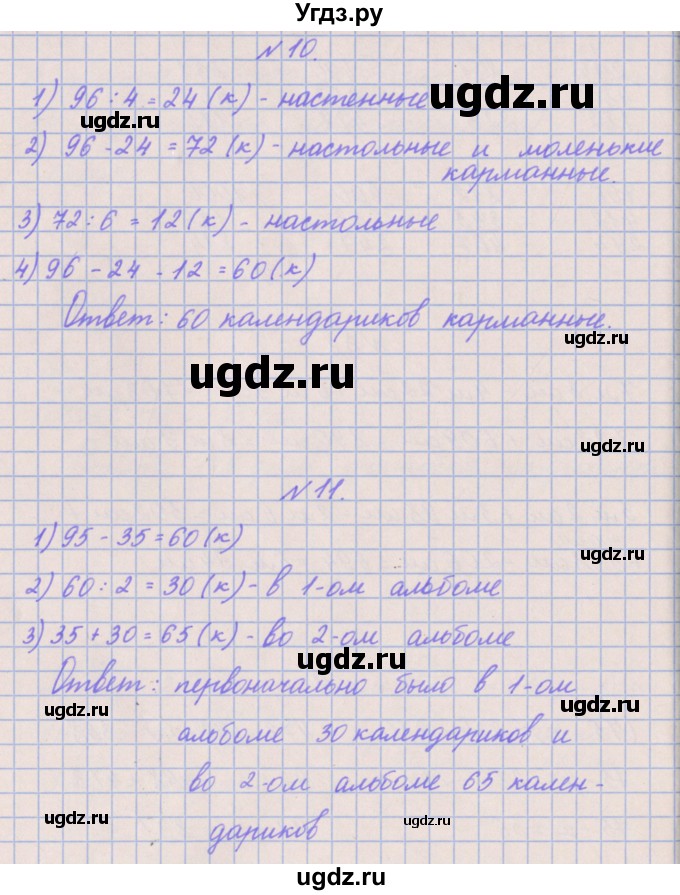 Угдз.ру
№ 10.
1) 96 : 4 = 24 (к) - настенные
ugdz.ru
ugdz.ru
2) 96 - 24 = 72 (к) - настольные и моленькие
ugdz.ru
карманные.
3) 72 : 6 = 12 (к) - настольные
4) 96 - 24 - 12 = 60 (к)
Ответ: 60 календариков карманные.
ugdz.ru
ugdz.ru
ugdz.ru
№ 11.
1) 95 - 35 = 60 (к)
ugdz.ru
2) 60 : 2 = 30 (к) - в 1-ом альбоме
3) 35 + 30 = 65 (к) - во 2-ом альбоме
ugdz.ru
Ответ: первоначально было в 1-ом
ugdz.ru
ugdz.ru
альбоме 30 календариков и
во 2-ом альбоме 65 кален-
ugdz.ru
ugdz.ru
дариков
ugdz.ru